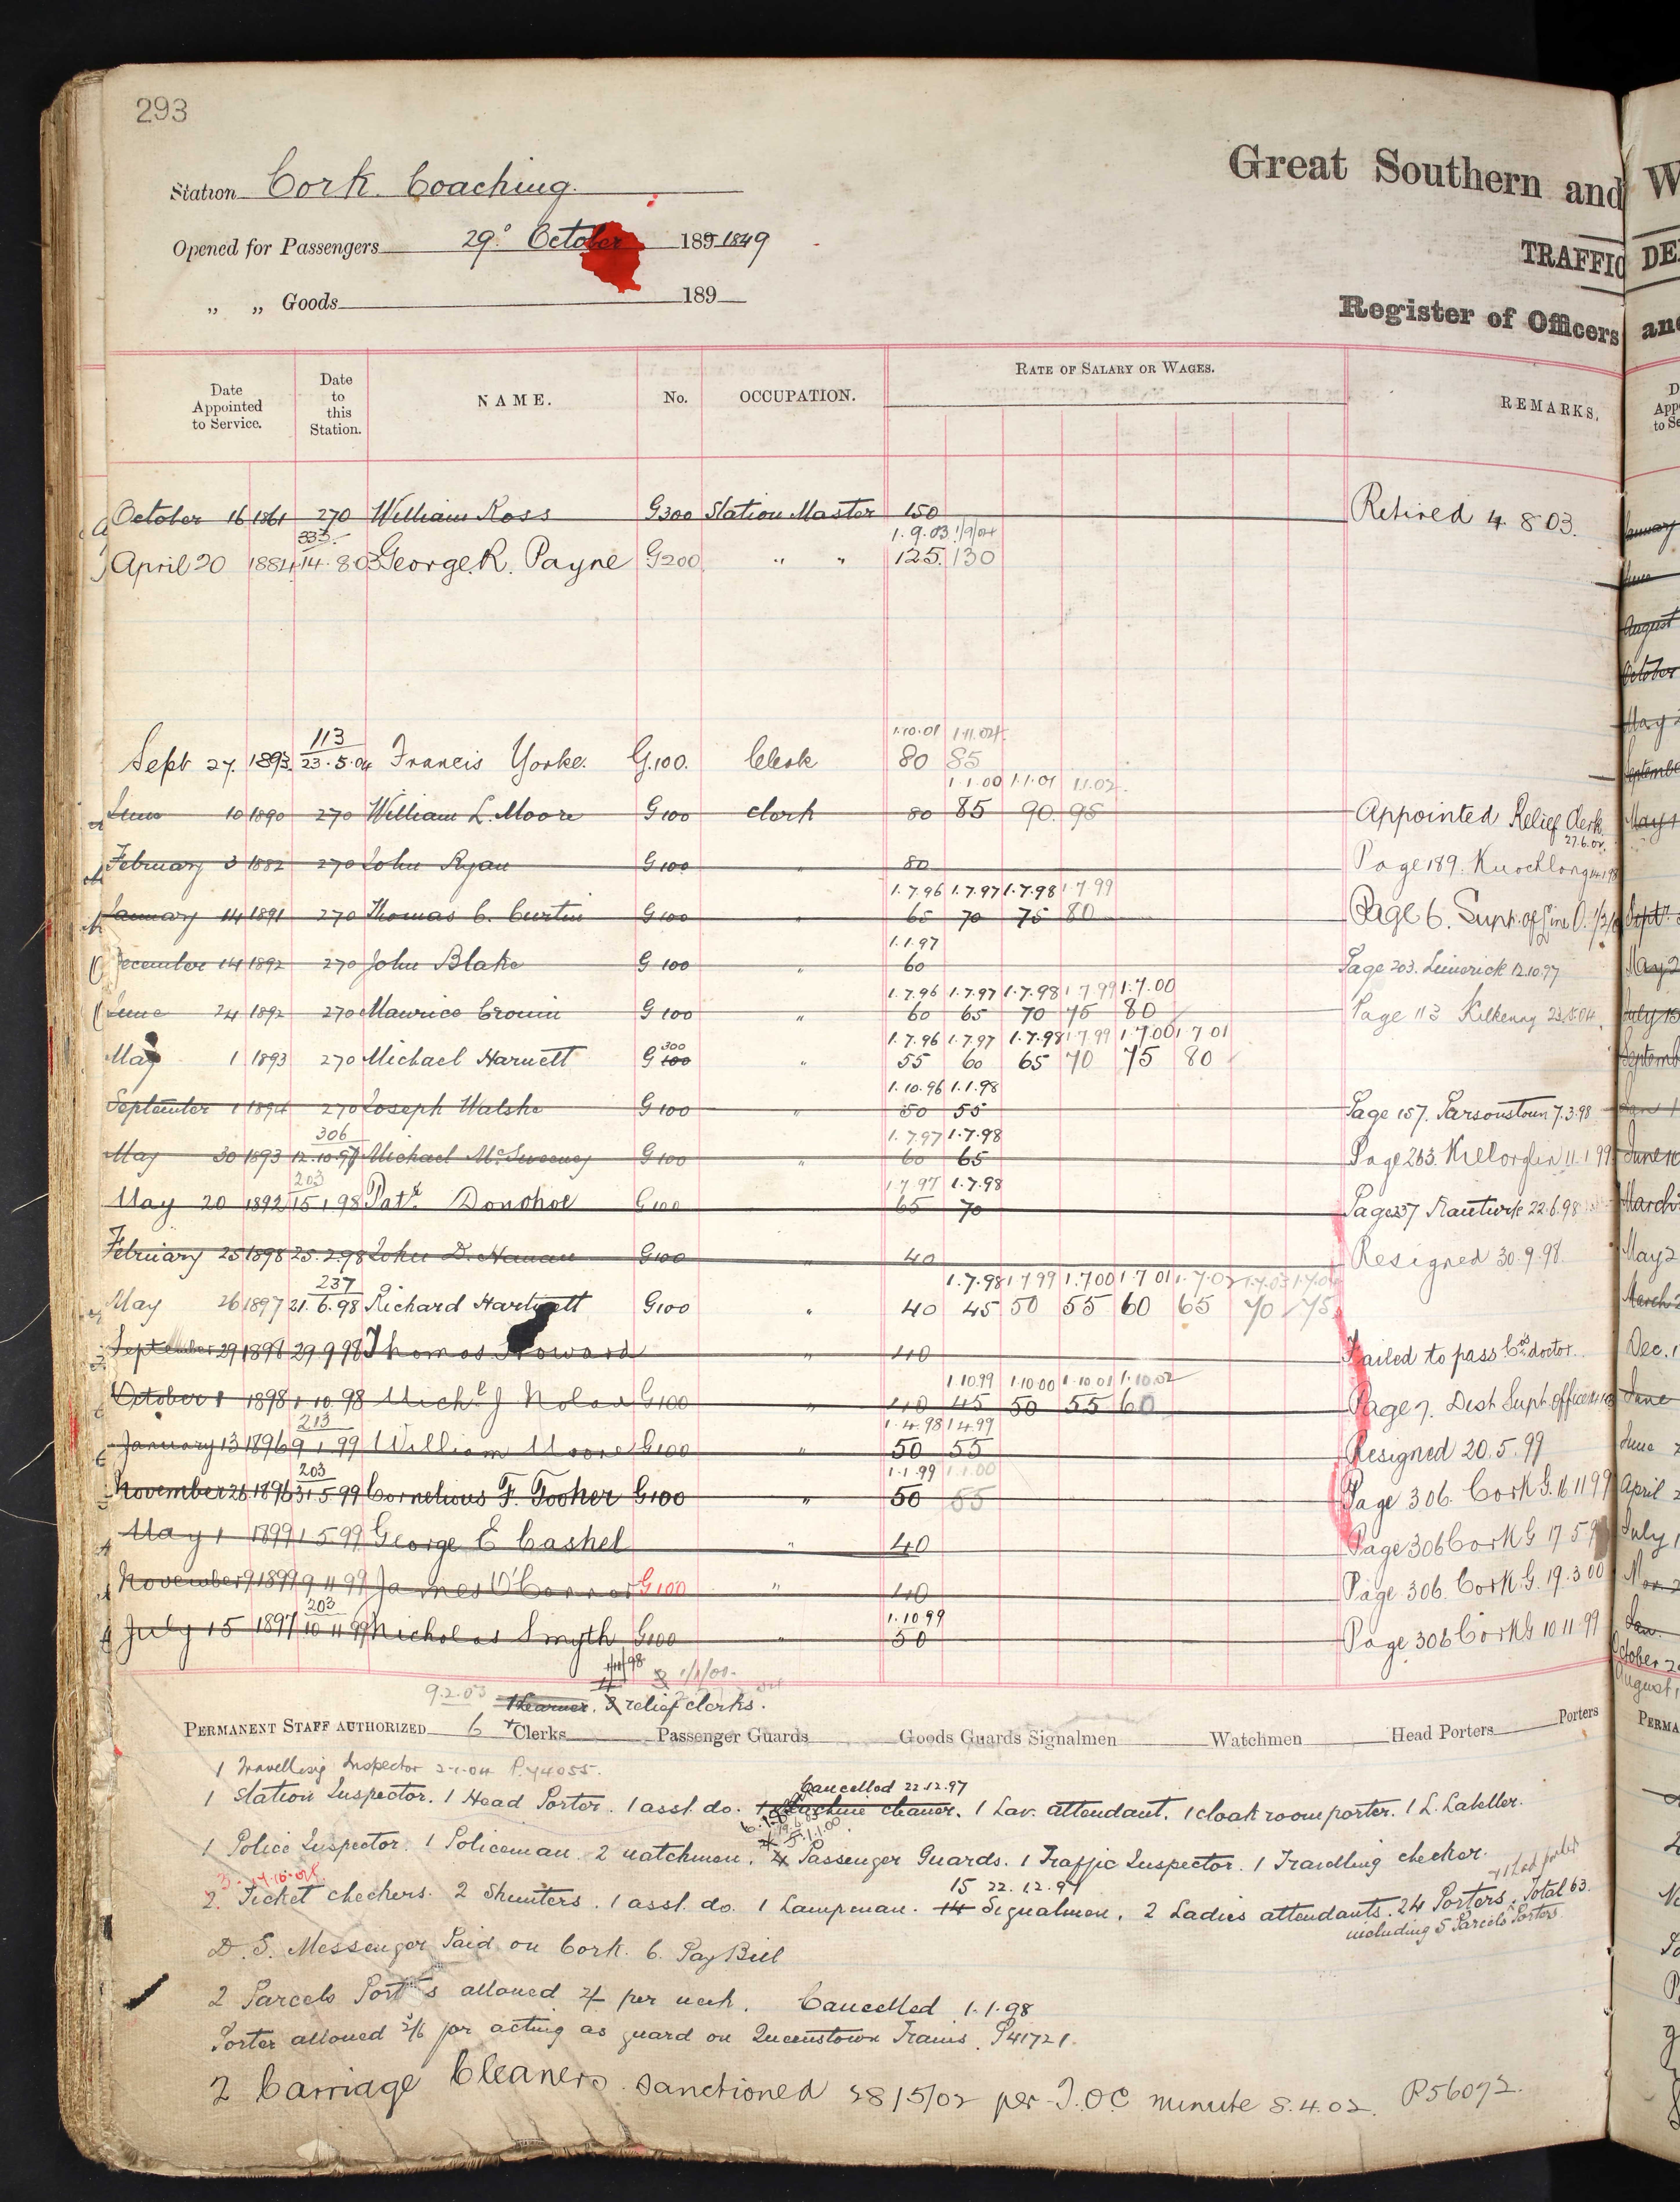 293
Great Southern and W
Station Cork Coaching.
TRAFFIC DE
Opened for Passengers 29° October 189 1849
" " Goods 189
Register of Officers an
Date Appointed to Service. Date to this Station. NAME. No. OCCUPATION. RATE OF SALARY OR WAGES. REMARKS.
October 16 1861 270 William Ross G300 Station Master 150 Retired 4.8.03.
333. 1.9.03 1/9/04
April 20 1884 14.8.03 George R. Payne G200 " " 125. 130
113 1.10.01 1.11.04.
Sept 27. 1893. 23.5.04 Francis Yorke. G.100. Clerk 80 85
1.1.00 1.1.01 1.1.02.
June 10 1890 270 William L. Moore G100 clerk 80 85 90. 95 Appointed Relief Clerk.
27.6.02.
February 3 1882 270 John Ryan G100 " 80 Page 189. Knocklong
1.7.96 1.7.97 1.7.98 1.7.99
January 14 1891 270 Thomas C. Curtin G100 " 65 70 75 80 Page 6. Supt. of Line O.
1.1.97
December 14 1892 270 John Blake G100 " 60 Page 203. Limerick 12.10.97
1.7.96 1.7.97 1.7.98 1.7.99 1.7.00
June 24 1892 270 Maurice Cronin G100 " 60 65 70 75 80 Page 113 Kilkenny 23.5.04.
1.7.96 1.7.97 1.7.98 1.7.99 1.7.00 1.7.01
May 1 1893 270 Michael Harnett G 100 300 " 55 60 65 70 75 80
1.10.96 1.1.98
September 1 1894 270 Joseph Walshe G100 " 50 55 Page 157. Parsonstown 7.3.98
306 1.7.97 1.7.98
May 30 1893 12.10.97 Michael McSweeney G100 " 60 65 Page 263. Killorglin 11.1.99
203 1.7.97 1.7.98
May 20 1892 15.1.98 Patk. Donohoe G100 65 70 Page 237 Kanturk 22.6.98
February 25 1898 25.2.98 John D. Hanan G100 " 40 Resigned 30.9.98.
237 1.7.98 1.7.99 1.7.00 1.7.01 1.7.02 1.7.03 1.7.04
May 26 1897 21.6.98 Richard Hartnett G100 " 40 45 50 55 60 65 70 75
September 29 1898 29.9.98 Thomas Howard " 40 Failed to pass Cos doctor.
1.10.99 1.10.00 1.10.01 1.10.02
October 1 1898 1.10.98 Michl J Nolan G100 " 40 45 50 55 60 Page 7. Dist Supt. office
213 1.4.98 1.4.99
January 13 1896 9.1.99 William Moore G100 " 50 55 Resigned 20.5.99
203 1.1.99 1.1.00
November 26 1896 31.5.99 Cornelious F. Tooher G100 " 50 55 Page 306. Cork G. 16.11.99
May 1 1899 1.5.99 George E Cashel " 40 Page 306 Cork G 17.5.9
November 9 1899 9.11.99 James O'Connor G100 " 40 Page 306. Cork. G. 19.3.00
203 1.10.99
July 15 1897 10.11.99 Nicholas Smyth G100 " 50 Page 306 Cork G 10.11.99
1/11/98
4 3 1/1/00.
9.2.03 1 Learner. 3 relief clerks.
PERMANENT STAFF AUTHORIZED 6 Clerks Passenger Guards Goods Guards Signalmen Watchmen Head Porters Porters
1 Travelling Inspector 2.1.04 P.44055.
Cancelled 22.12.97
1 Station Inspector. 1 Head Porter. 1 asst. do. 1 Machine cleaner. 1 Lav. attendant. 1 cloak room porter. 1 L. Labeller.
1 Police Inspector. 1 Policeman. 2 watchmen. 4 Passenger Guards. 1 Traffic Inspector. 1 Travelling checker.
15 22.12.97
2. Ticket checkers. 2 Shunters. 1 asst. do. 1 Lampman. 14 Signalmen. 2 Ladies attendants. 24 Porters. Total 63.
including 5 Parcels Porters
D.S. Messenger Paid on Cork. G. Pay Bill
2 Parcels Porters allowed 4/ per week. Cancelled 1.1.98
Porter allowed 2/6 for acting as guard on Queenstown Trains. P41721.
2 Carriage Cleaners sanctioned 28/5/02 per T.O.C minute 8.4.02. P56092.